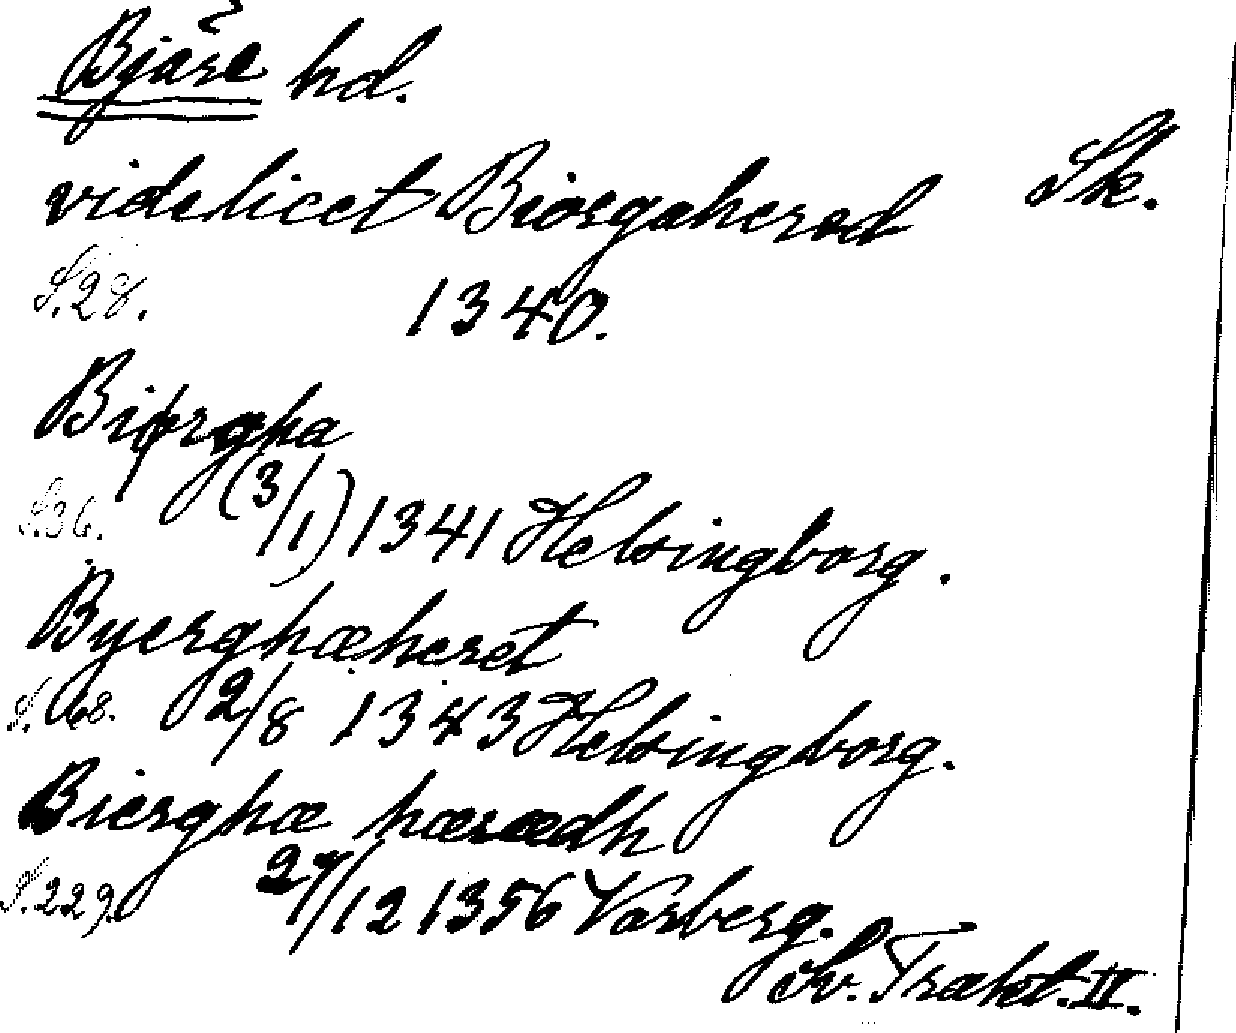 Bjäre hd.
Sk.
videlicet Biorgaherad
S. 28. 1340.
Biørgha
S. 36. (3/1) 1341 Helsingborg.
Byerghæheret
S. 68. 2/8 1343 Helsingborg.
Bierghæ hærædh
S. 229. 27/12 1356 Varberg.
Sv. Trakt. II.